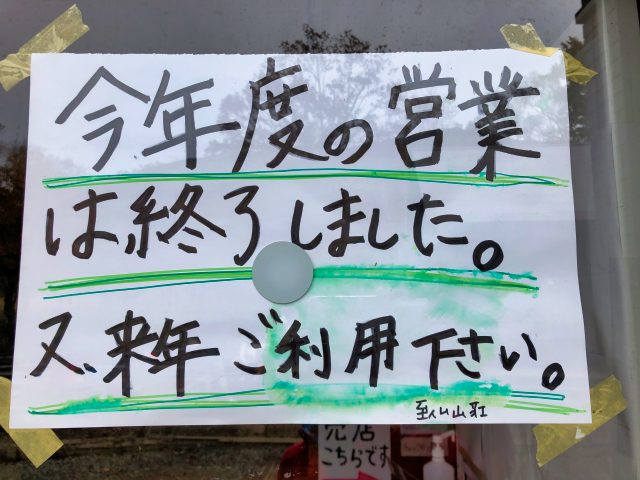 今年度の営業
は終了しました。
又、来年ご利用下さい。
至仏山荘
売店
こちらです